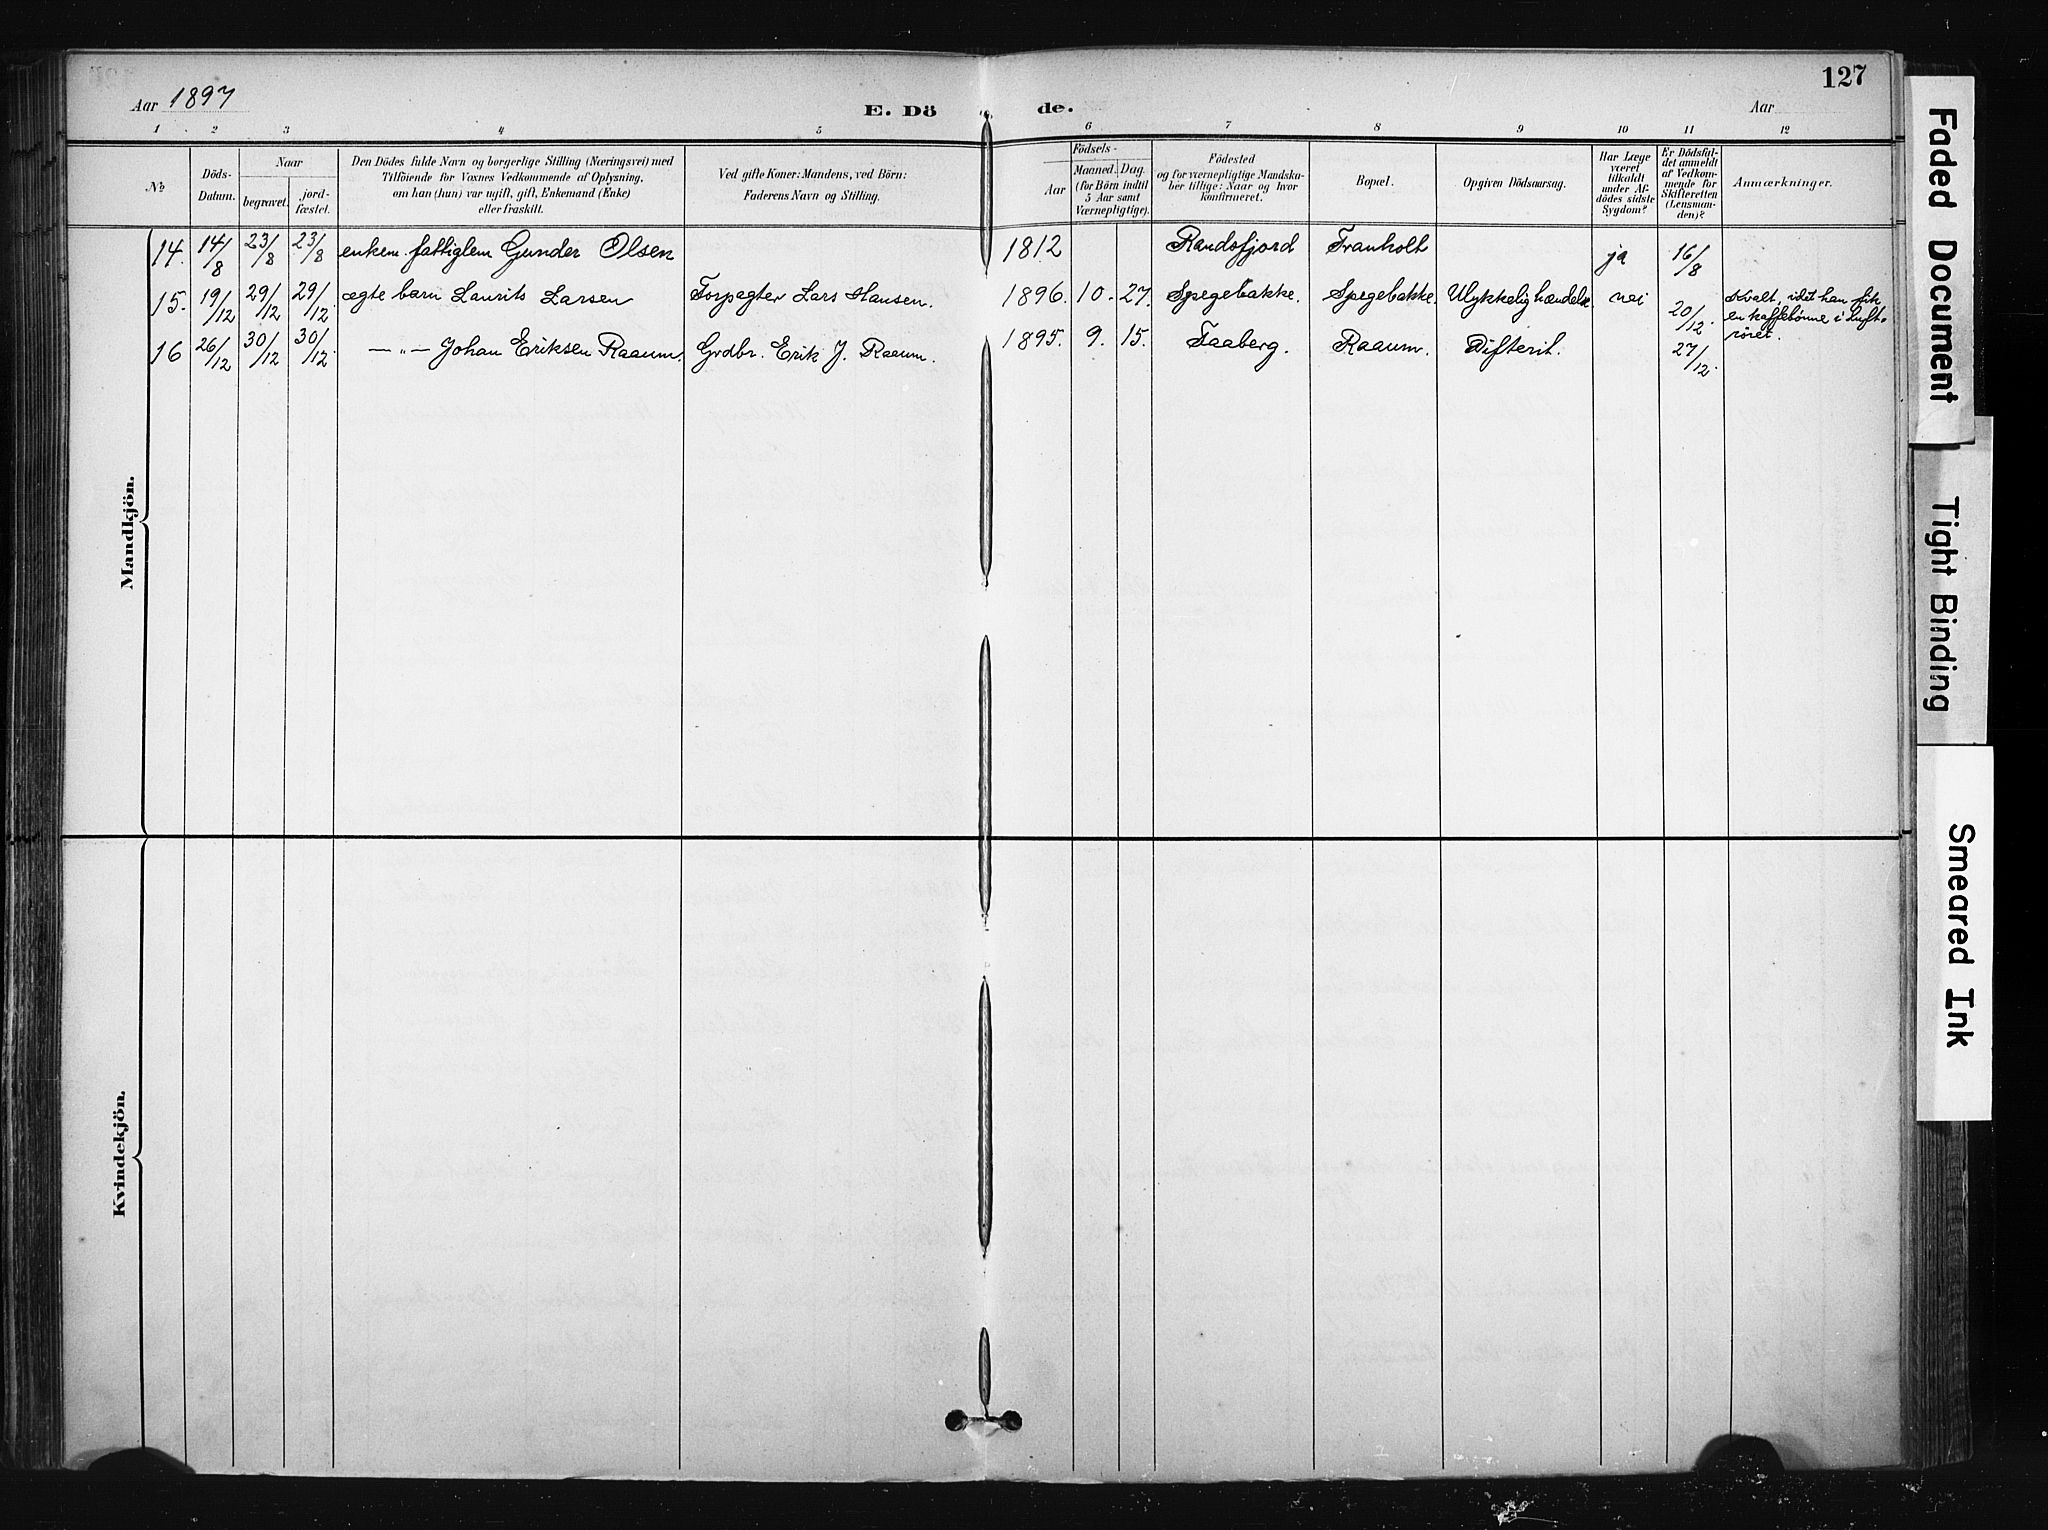 127
Aar 1897 E. Dö de. Aar
1 2 3 4 5 6 7 8 9 10 11 12
No
Döds-
Datum.
Naar
begravet.
jord-
fæstet.
Den Dödes fulde Navn og borgerlige Stilling (Næringsvei) med
Tilföiende for Voxnes Vedkommende af Oplysning,
om han (hun) var ugift, gift, Enkemand (Enke)
eller fraskilt.
Ved gifte Koner: Mandens, ved Börn:
Faderens Navn og Stilling.
Födsels-
Aar
Maaned. Dag.
(for Börn indtil
5 Aar samt
Værnepligtige).
Födested
og for værnepligtige Mandska-
ber tillige: Naar og hvor
konfirmeret.
Bopæl.
Opgiven Dödsaarsag.
Har Læge
været
tilkaldt
under Af-
dödes sidste
Sygdom?
Er Dödsfal-
det anmeldt
af Vedkom-
mende for
Skifteretten
(Lensman-
den)?
Anmærkninger.
Mandkjön.
14. 14/8 23/8 23/8 enkem. fattiglem Gunder Olsen 1812 Randsfjord Tranholt ja 16/8
15. 19/12 29/12 29/12 ægte barn Laurits Larsen Forpagter Lars Hansen. 1896. 10. 27. Spegebakke. Spegebakke. Ulykkelig hændelse nei 20/12. kvalt, idet han fik
en kaffebönne i Luft-
röret.
16 26/12 30/12 30/12 —"— Johan Eriksen Raaum. Grdbr. Erik J. Raaum. 1895. 9. 15. Faaberg. Raaum. Difterit. 27/12.
Kvindekjön.
Faded Document
Tight Binding
Smeared Ink